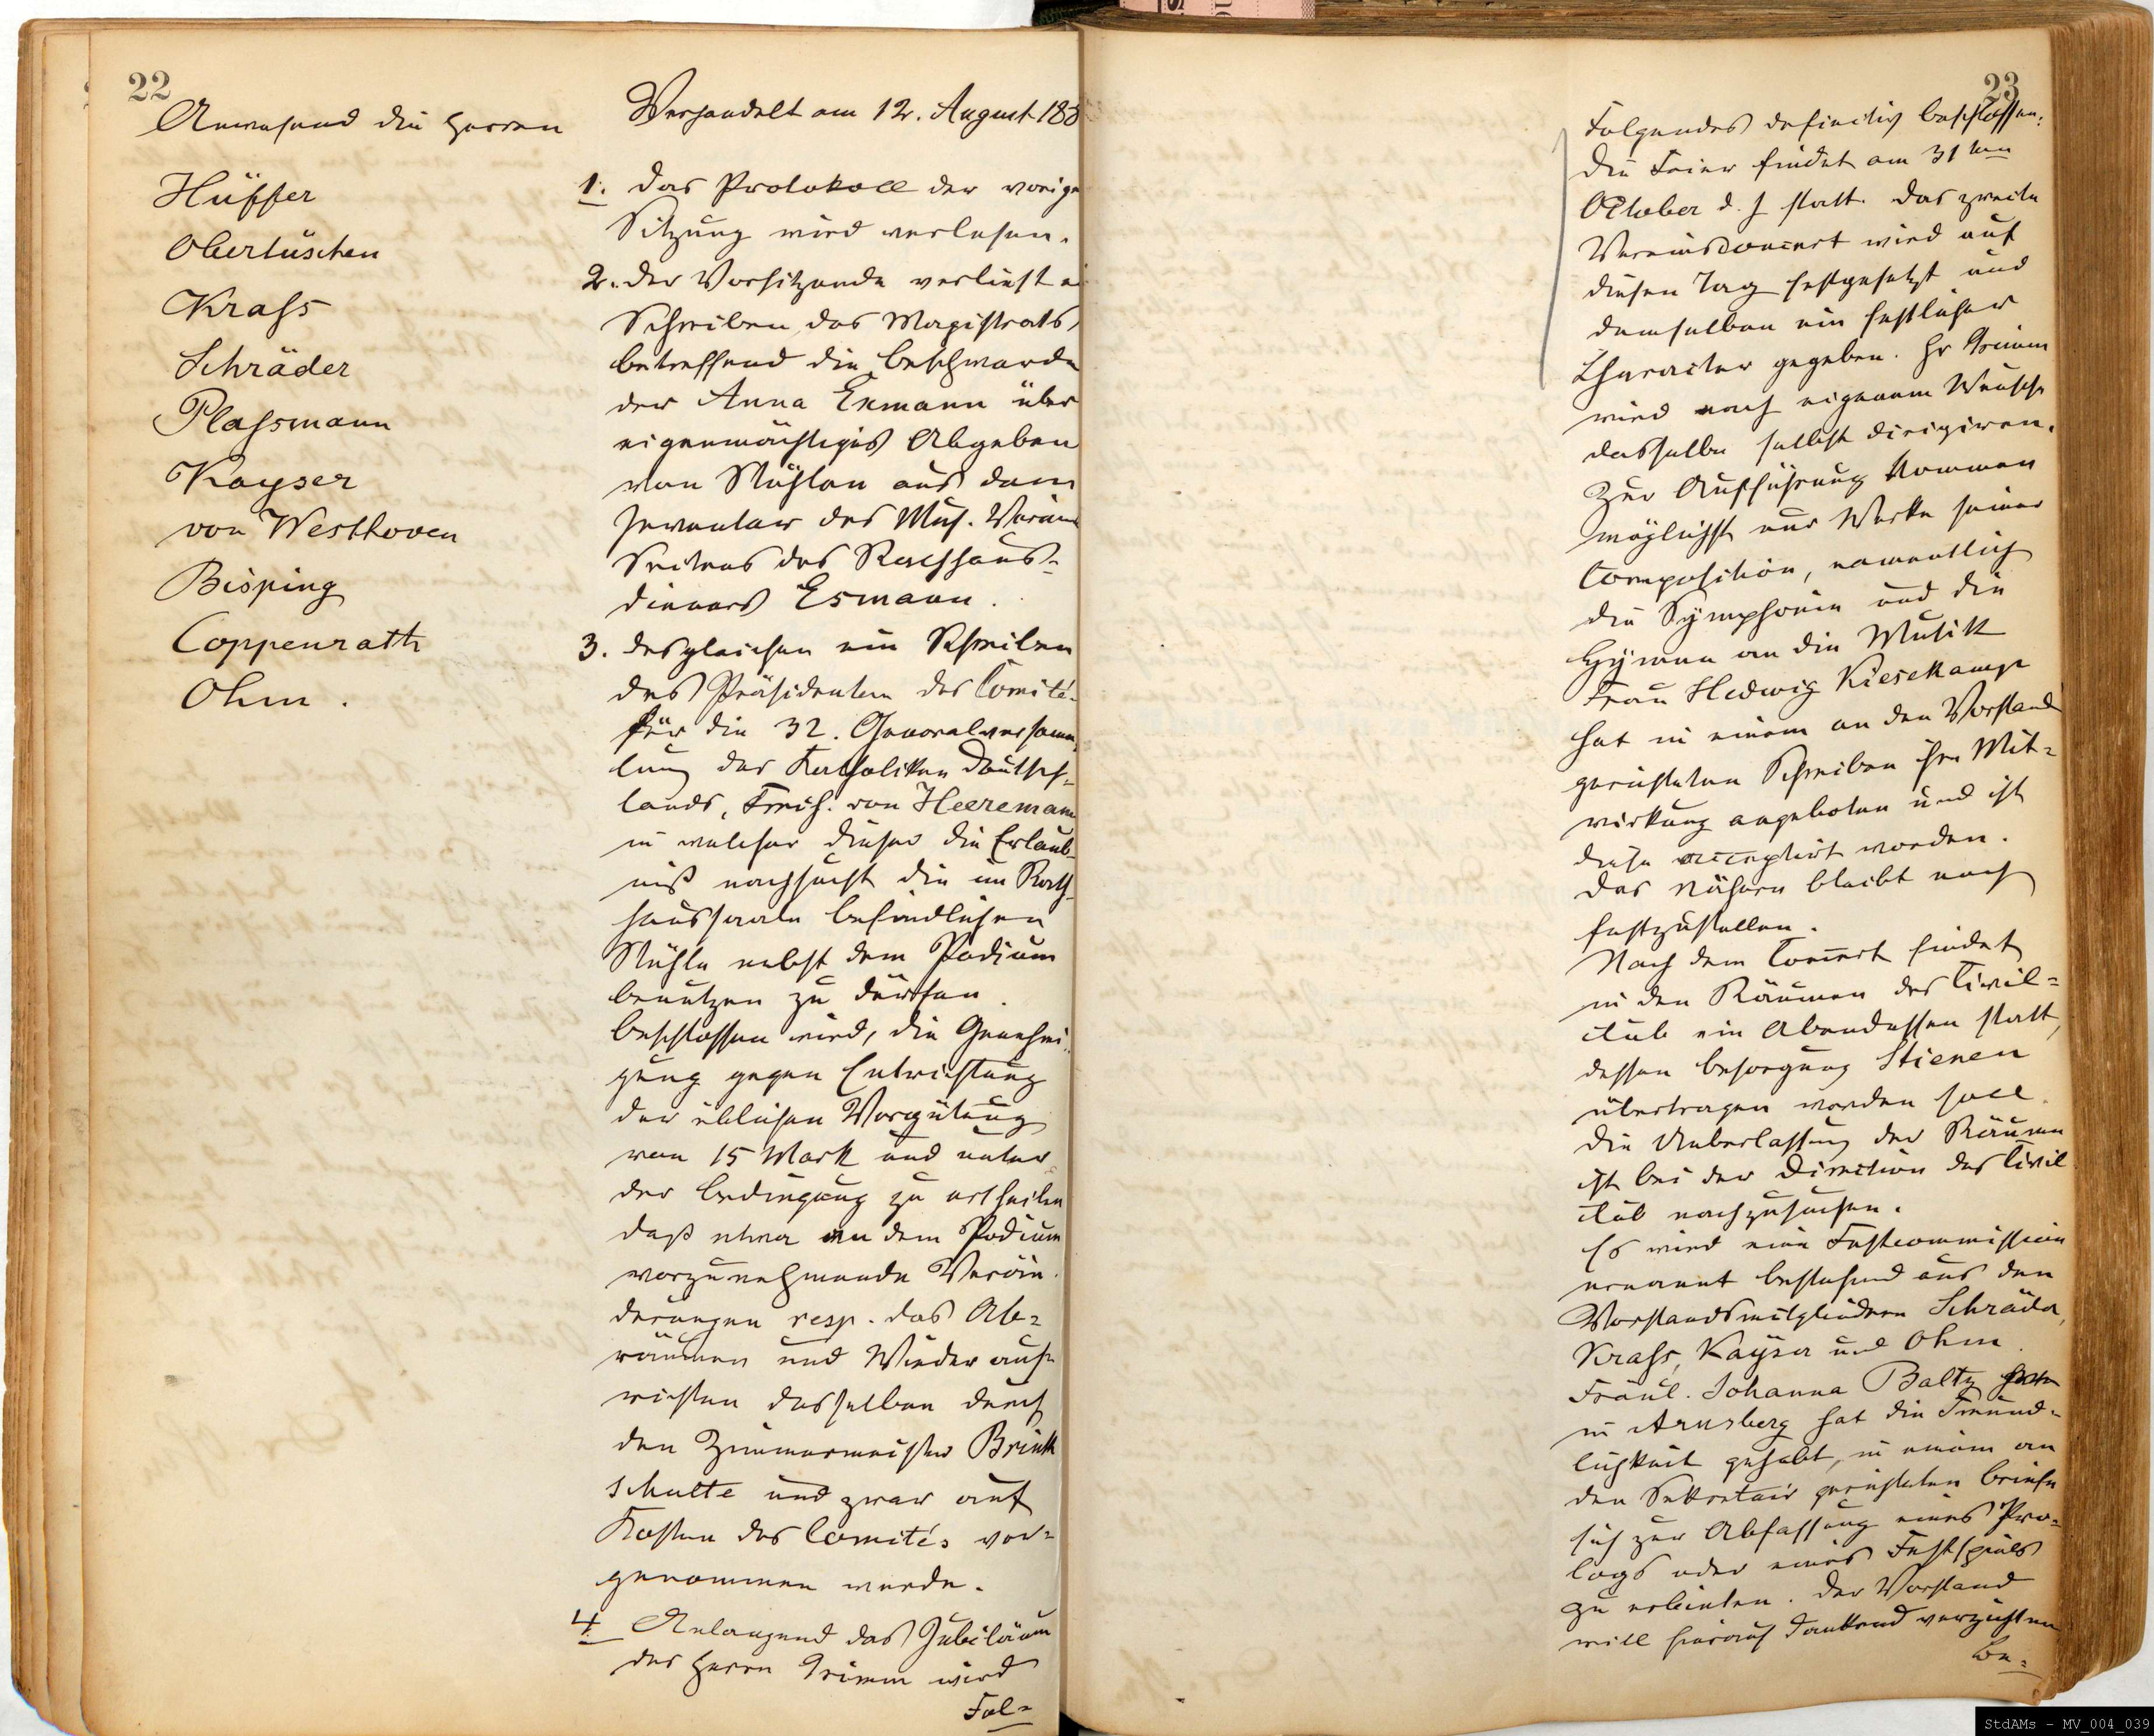 22
Anwesend die Herren
Hüffer
Obertüschen
Kraſs
Schräder
Plaſsmann
Kayser
von Westhoven
Bisping
Coppenrath
Ohm.
Verhandelt am 12. August 188
1. Das Protokoll der vorige
Sitzung wird verlesen.
2. Der Vorsitzende verliest ei
Schreiben des Magistrats,
betreffend die Beschwerde
der Anna Exmann über
eigenmächtiges Abgeben
von Stühlen aus dem
Inventar des Mus. Vereins
Seitens des Rathhaus-
dieners Esmann.
3. Desgleichen ein Schreiben
des Präsidenten des Comité-
für die 32. Generalversamm
lung der Katholiken Deutsch-
lands, Freih. von Heereman
in welcher dieser die Erlaub-
niß nachsucht die im Rath-
haussaale befindlichen
Stühle nebst dem Podium
benutzen zu dürfen.
Beschlossen wird, die Genehmi-
gung gegen Entrichtung
der üblichen Vergütung
von 15 Mark und unter
der Bedingung zu ertheilen
daß etwa an dem Podium
vorzunehmende Verän-
derungen resp. das Ab-
räumen und Wiederauf-
richten desselben durch
den Zimmermeister Brink
schulte und zwar auf
Kosten des Comités vor-
genommen werde.
4. Anlangend das Jubiläum
des Herrn Grimm wird
Fol-
23
Folgendes definitiv beschlossen:
Die Feier findet am 31ten
October d. J statt. Das zweite
Vereinsconcert wird auf
diesen Tag festgesetzt und
demselben ein festlicher
Character gegeben. Hr Grimm
wird nach eigenem Wunsche
dasselbe selbst dirigiren.
Zur Aufführung kommen
möglichst nur Werke seiner
Composition, namentlich
die Symphonie und die
Hymne an die Musik
Frau Hedwig Kiesekamp
hat in einem an den Vorstand
gerichteten Schreiben ihre Mit-
wirkung angeboten und ist
diese acceptirt worden.
Das Nähere bleibt noch
festzustellen.
Nach dem Concert findet
in den Räumen des Civil-
club ein Abendessen statt,
dessen Besorgung Stienen
übertragen werden soll.
Die Ueberlassung der Räume
ist bei der Direction des Civil
club nachzusuchen.
Es wird eine Festcommission
ernannt bestehend aus den
Vorstandsmitgliedern Schräder,
Kraſs, Kayser und Ohm.
Fräul. Johanna Baltz
in Arnsberg hat die Freund-
lichkeit gehabt, in einem an
den Sekretair gerichteten Briefe
sich zur Abfassung eines Pro-
logs oder eines Festspiels
zu erbieten. Der Vorstand
will hierauf dankend verzichten
Be-
StdAMs - MV_004_039